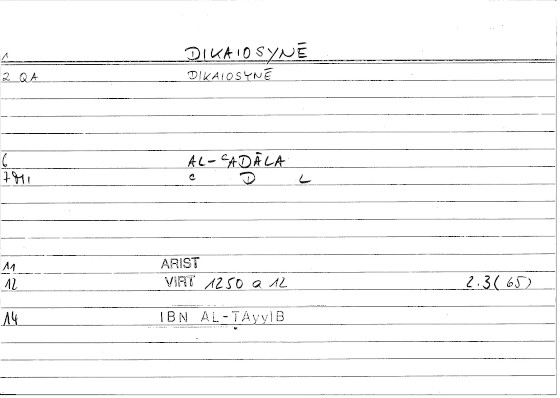 1 DIKAIOSYNĒ
2 QA DIKAIOSYNĒ
6 AL-ʿADĀLA
ʿ D L
11 ARIST
12 VIRT 1250 a 12 2.3(65)
14 IBN AL-ṬAyyIB